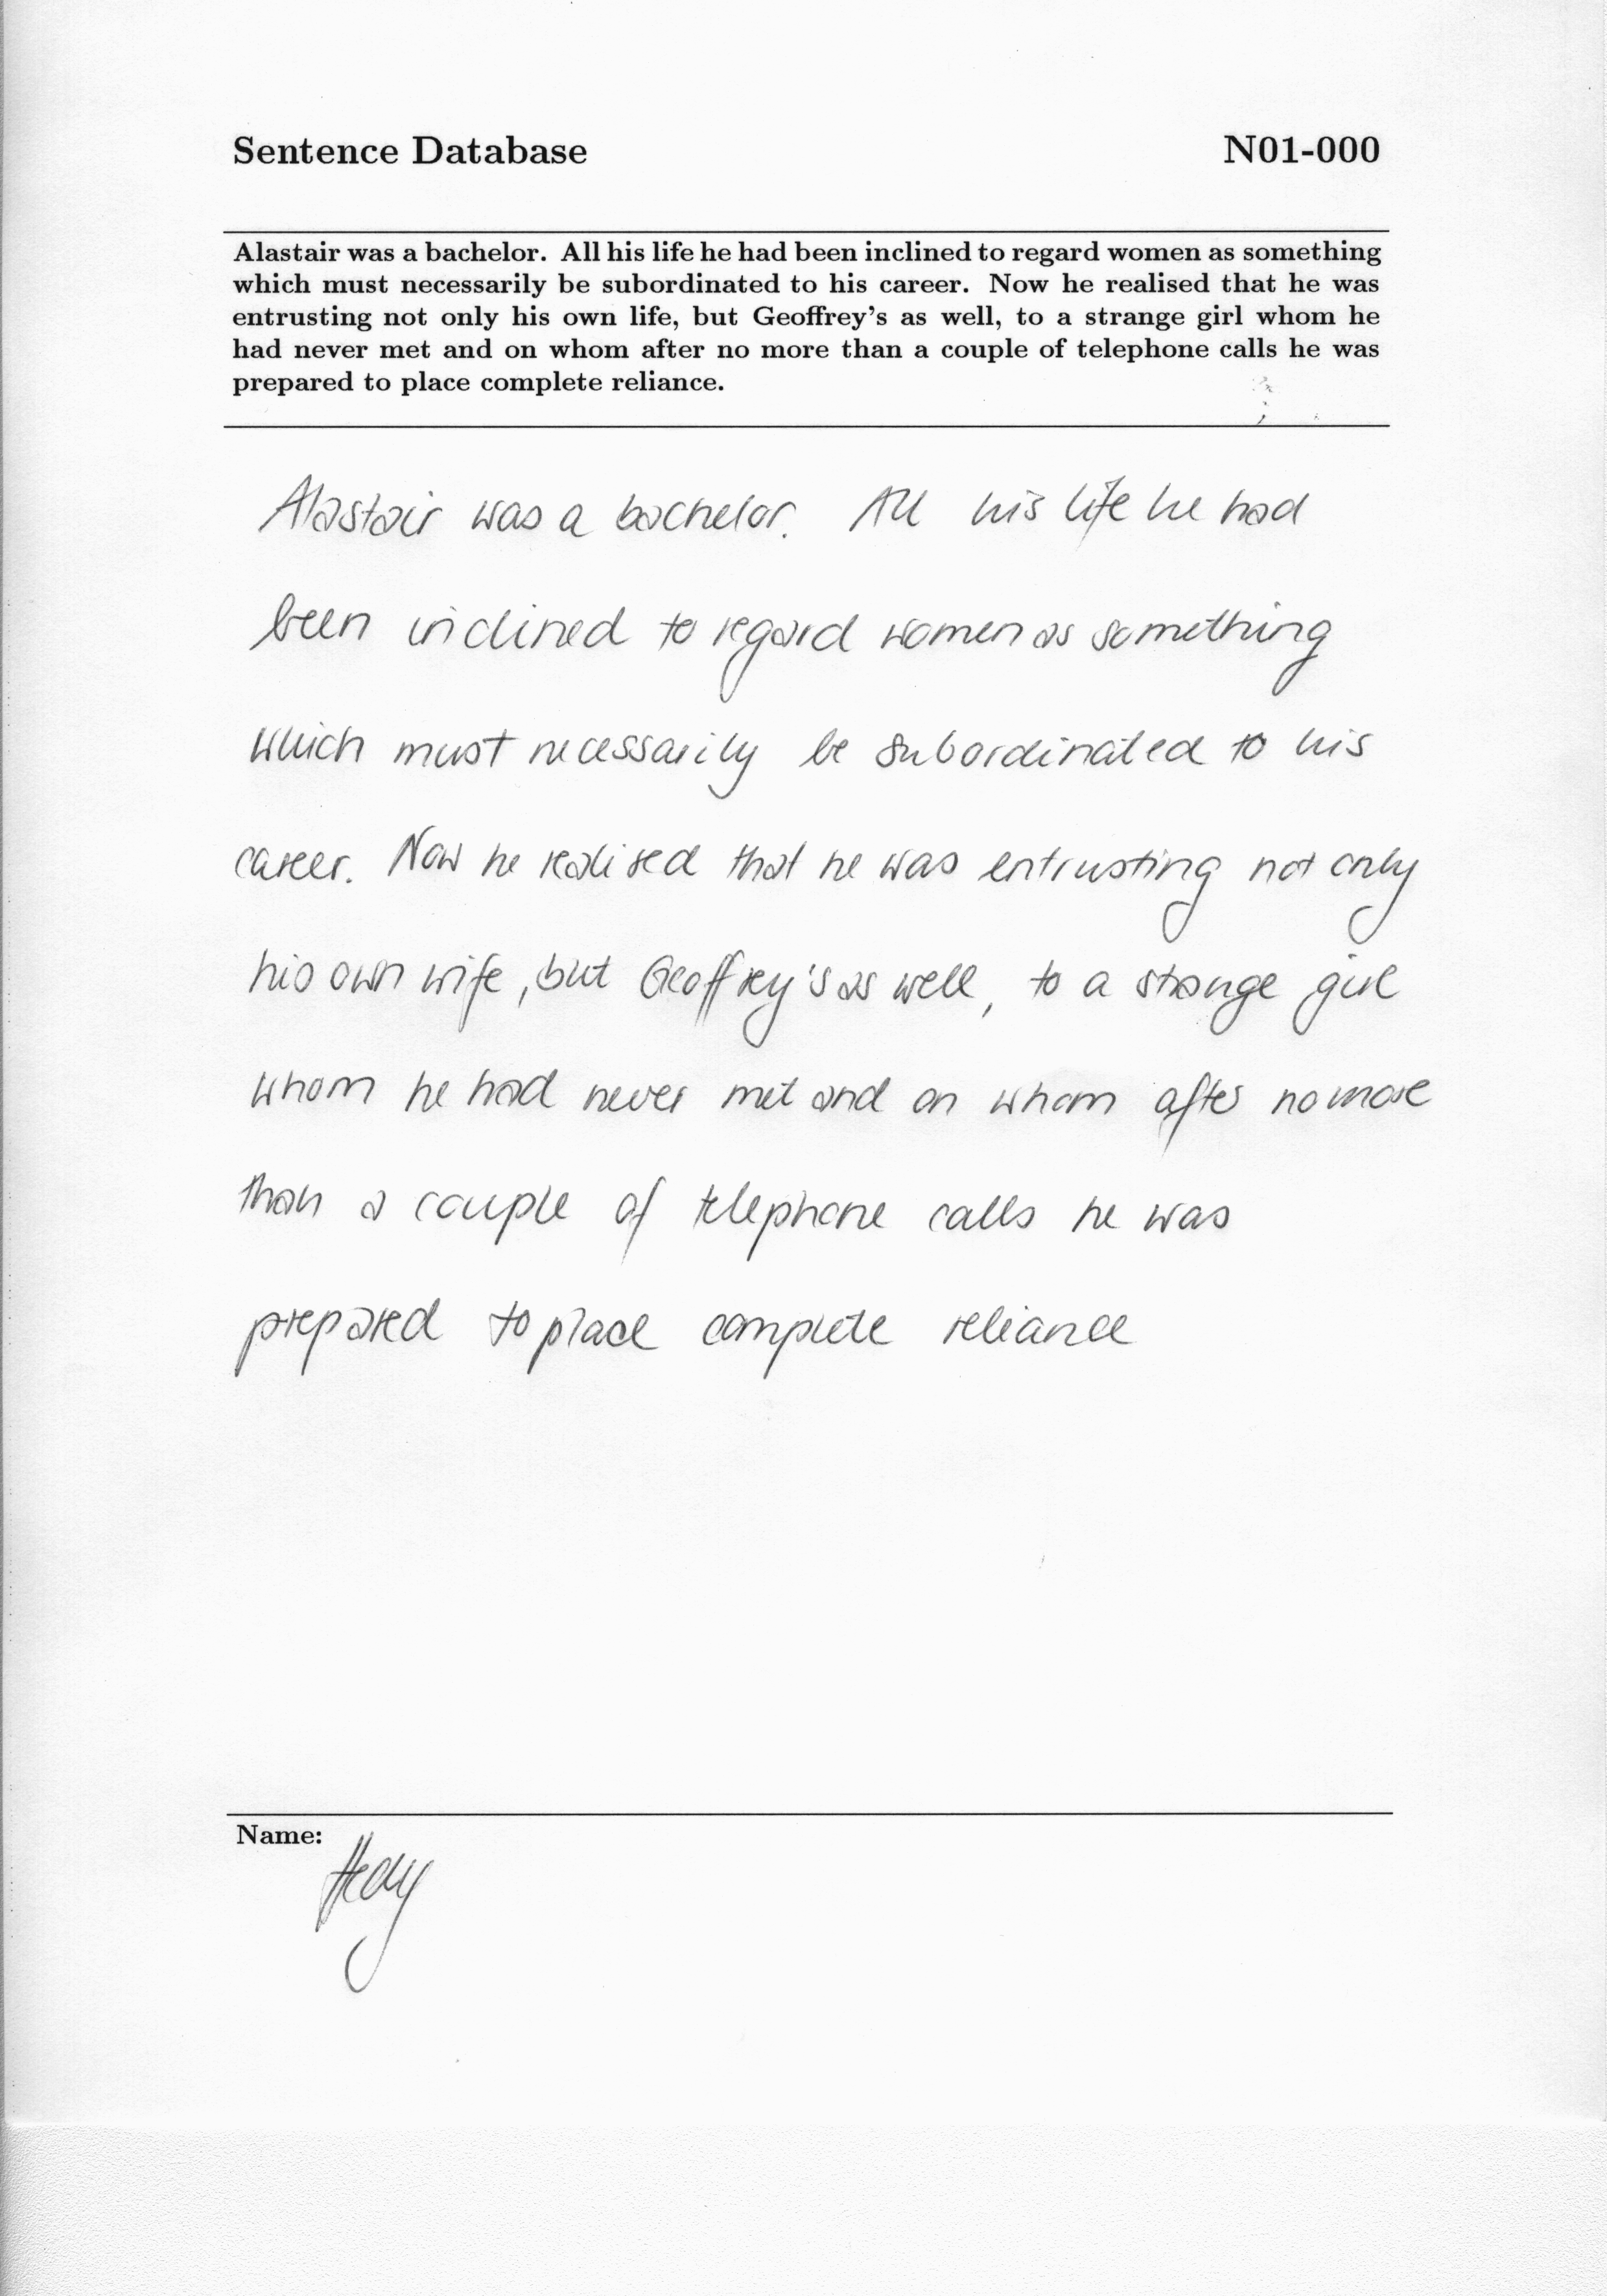 Sentence Database N01-000
Alastair was a bachelor. All his life he had been inclined to regard women as something
which must necessarily be subordinated to his career. Now he realised that he was
entrusting not only his own life, but Geoffrey's as well, to a strange girl whom he
had never met and on whom after no more than a couple of telephone calls he was
prepared to place complete reliance.
Alastair was a bachelor. All his life he had
been inclined to regard women as something
which must necessarily be subordinated to his
career. Now he realised that he was entrusting not only
his own wife, but Geoffrey's as well, to a strange girl
whom he had never met and on whom after no more
than a couple of telephone calls he was
prepared to place complete reliance
Name:
Hedy